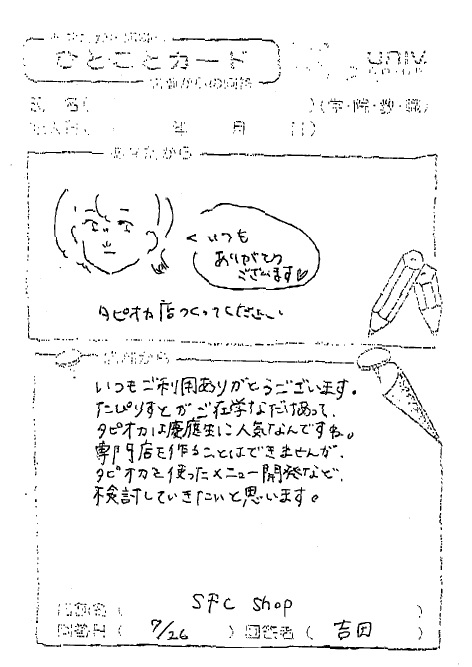 ひとことカード
univ
CO-OP
氏 名(　)(学・院・教・職)
記入日(　年　月　日)
あなたから
いつも
ありがとう
ございます♡
タピオカ店つくってくださぃ〜
生協から
いつもご利用ありがとうございます。
たぴりすとがご在学なだけあって、
タピオカは慶應生に人気なんですね。
専門店を作ることはできませんが、
タピオカを使ったメニュー開発など、
検討していきたいと思います。
SFC shop
回答日( 7/26 ) 回答者( 吉田 )